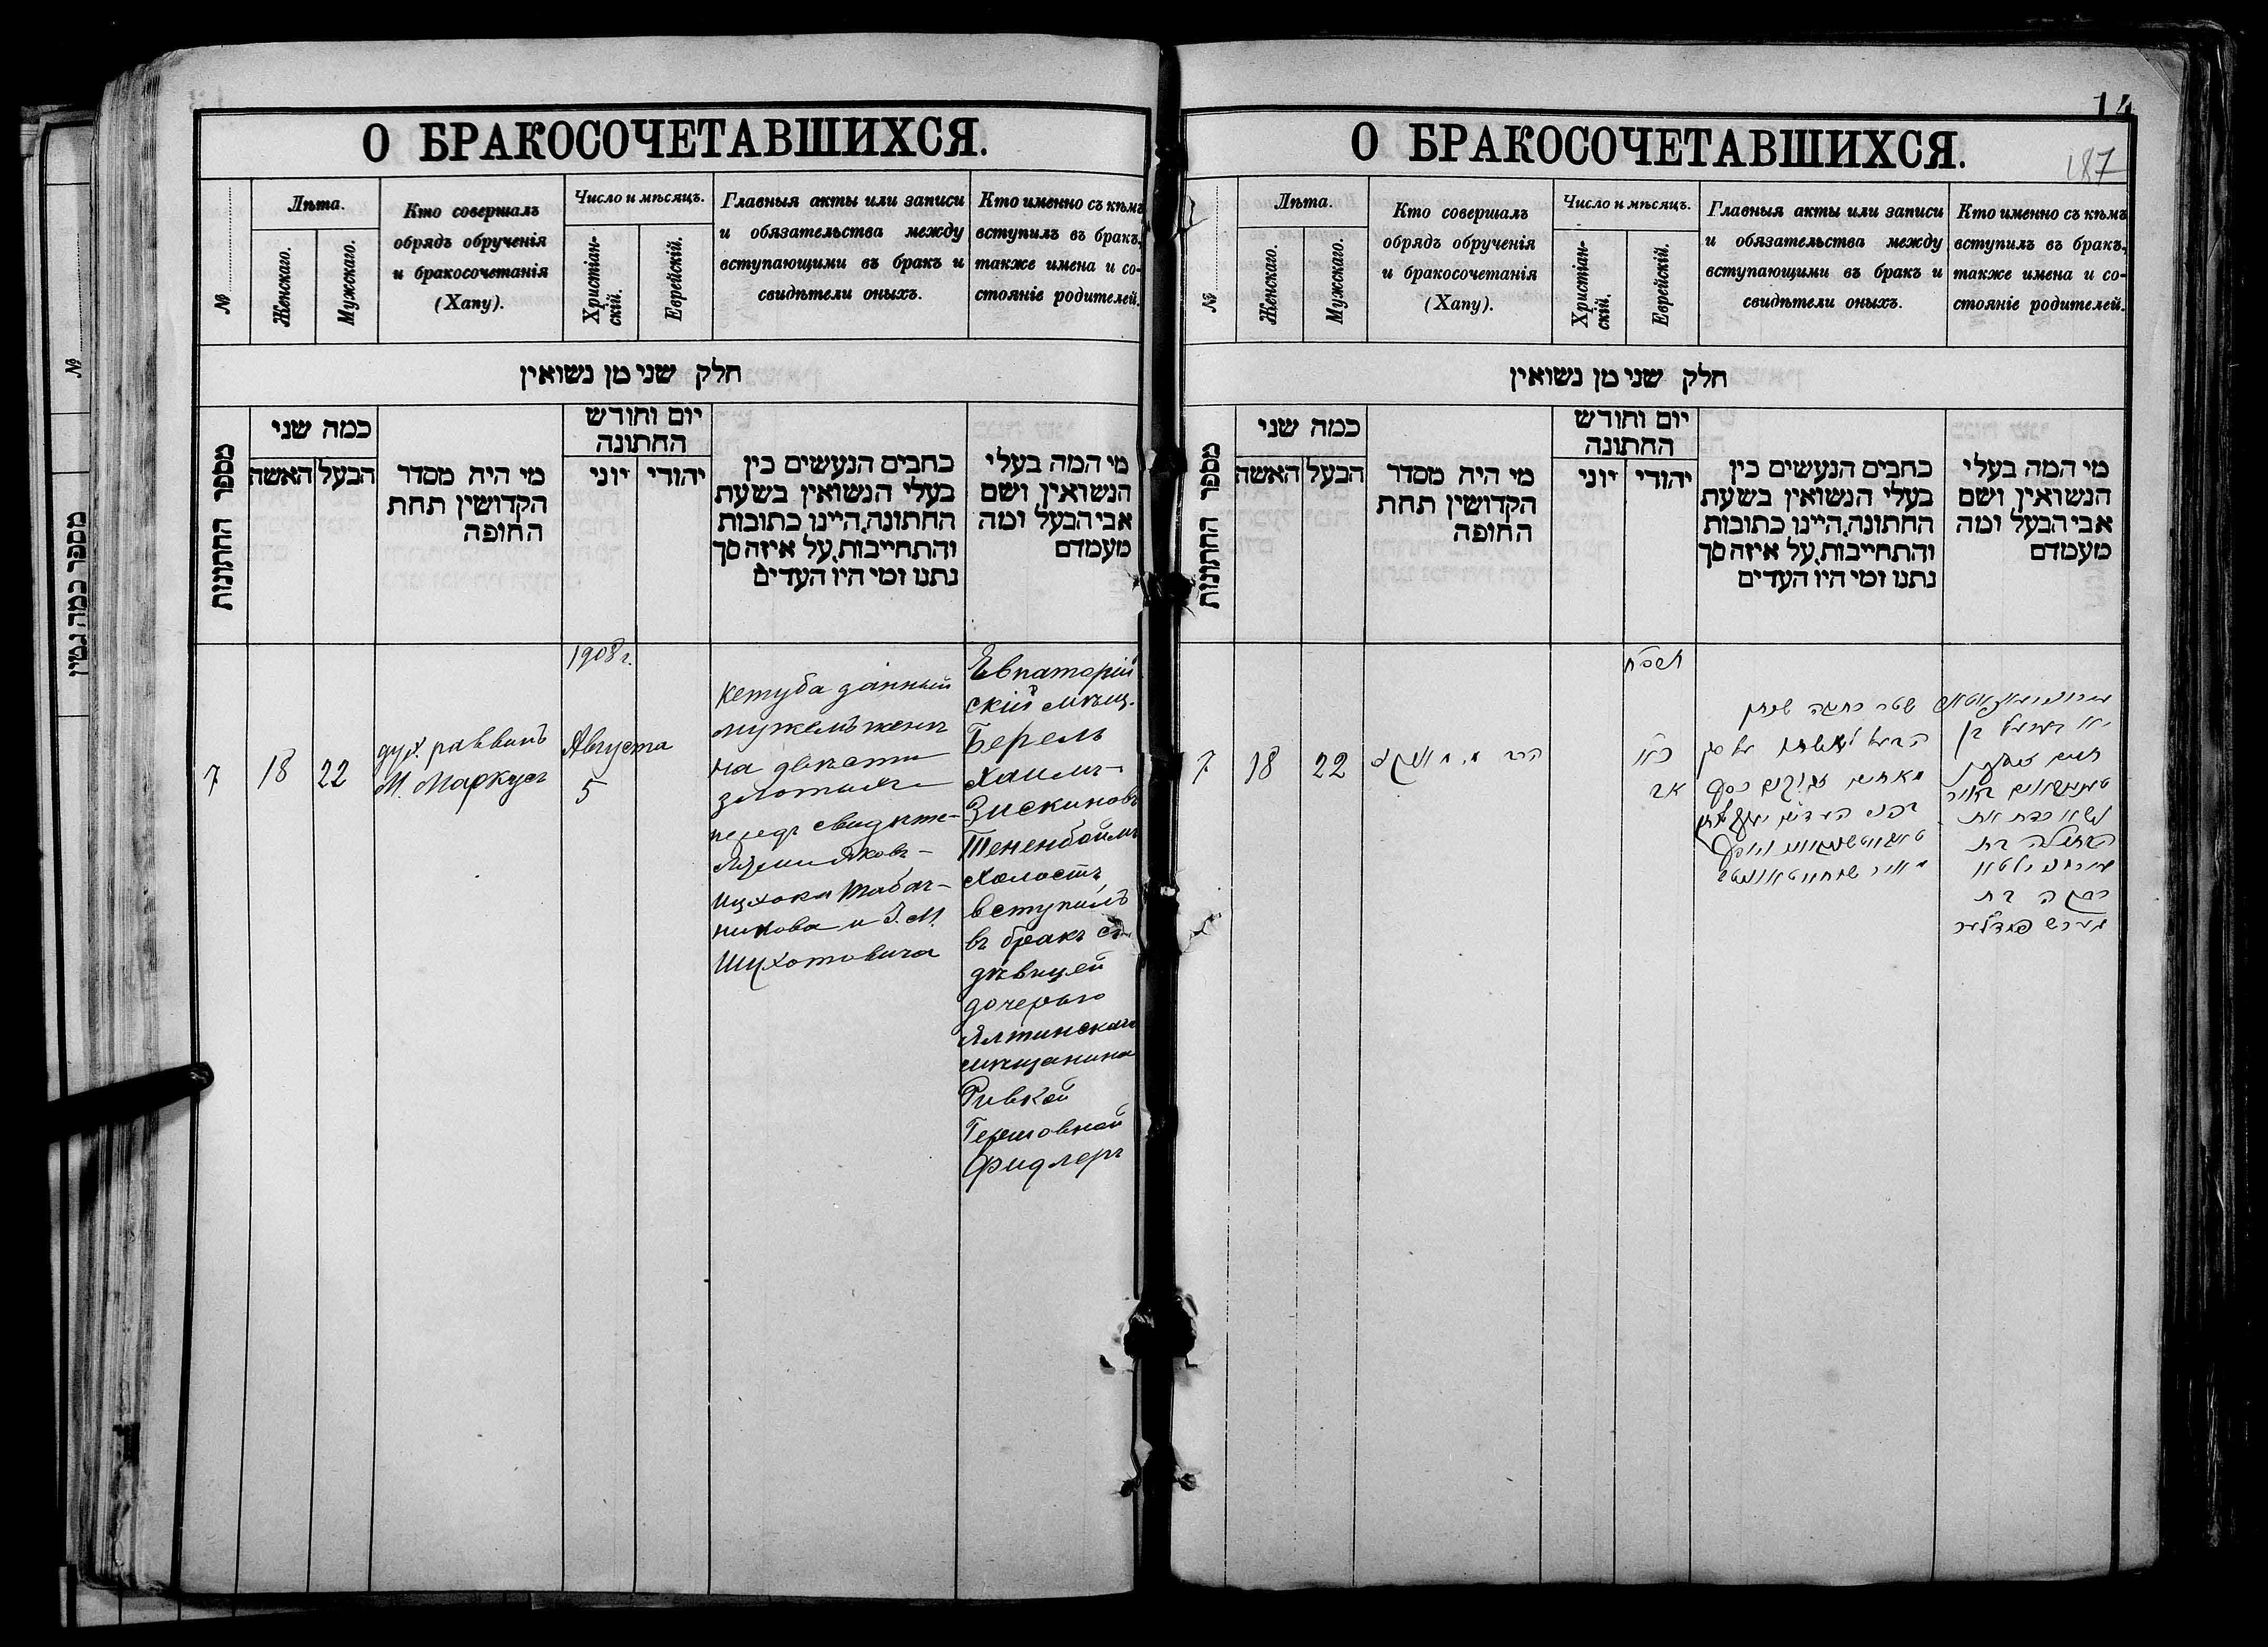 О БРАКОСОЧЕТАВШИХСЯ.
№
Лѣта.
Женскаго.
Мужскаго.
Кто совершалъ
обрядъ обрученія
и бракосочетанія
(Хапу).
Число и мѣсяцъ.
Христіан-
скій.
Еврейскій.
Главныя акты или записи
и обязательства между
вступающими въ бракъ и
свидѣтели оныхъ.
Кто именно съ кѣмъ
вступилъ въ бракъ,
также имена и со-
стояніе родителей.
חלק שני מן נשואין
מספר החתונות
כמה שני
האשה
הבעל
מי היה מסדר
הקדושין תחת
החופה
יום וחודש
החתונה
יוני
יהודי
כתבים הנעשים בין
בעלי הנשואין בשעת
החתונה, היינו כתובות
והתחייבות, על איזה סך
נתנו ומי היו העדים
מי המה בעלי
הנשואין ושם
אבי הבעל ומה
מעמדם
7
18
22
дух. раввинъ
М. Маркусъ
1908 г.
Августа
5
Кетуба данный
мужемъ женѣ
на двѣсти
злотыхъ
передъ свидѣте-
лями Яковъ-
Ицхока Табач-
никова и З. М.
Шухотовича
Евпаторій
скій мѣщ.
Берель
Хаимъ-
Зискиновъ
Тененбоймъ
холостъ
вступилъ
въ бракъ съ
дѣвицей
дочерью
Ялтинскаго
мѣщанина
Ривкой
Гершовной
Фидлеръ
14
187
О БРАКОСОЧЕТАВШИХСЯ.
№
Лѣта.
Женскаго.
Мужскаго.
Кто совершалъ
обрядъ обрученія
и бракосочетанія
(Хапу).
Число и мѣсяцъ.
Христіан-
скій.
Еврейскій.
Главныя акты или записи
и обязательства между
вступающими въ бракъ и
свидѣтели оныхъ.
Кто именно съ кѣмъ
вступилъ въ бракъ,
также имена и со-
стояніе родителей.
חלק שני מן נשואין
מספר החתונות
כמה שני
האשה
הבעל
מי היה מסדר
הקדושין תחת
החופה
יום וחודש
החתונה
יוני
יהודי
כתבים הנעשים בין
בעלי הנשואין בשעת
החתונה, היינו כתובות
והתחייבות, על איזה סך
נתנו ומי היו העדים
מי המה בעלי
הנשואין ושם
אבי הבעל ומה
מעמדם
7
18
22
הרב מ. מארקוס
תרס״ח
אב
שטר כתובה שנתן
הבעל לאשתו על סך
מאתים זקוקים כסף
בפני העדים
חיים
נשא כדת את
הבתולה בת
רבקה בת
הירש פידלער